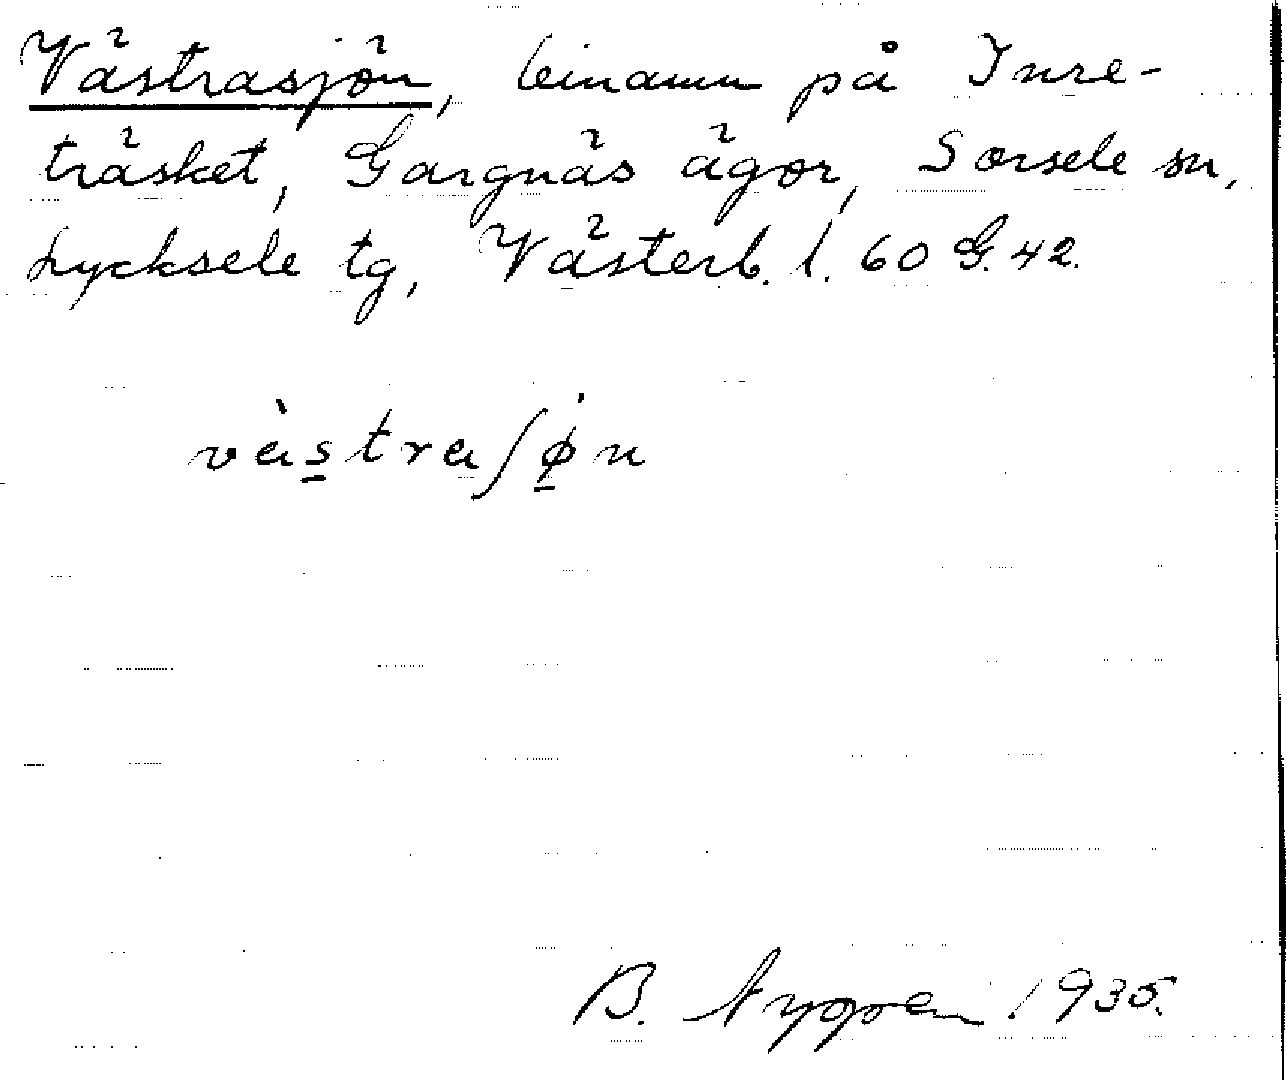 Västrasjön, binamn på Inre-
träsket, Gargnäs ägor, Sorsele sn,
Lycksele tg, Västerb. l. 60 G. 42.
vàstraʃøn
B. Nygren 1935.